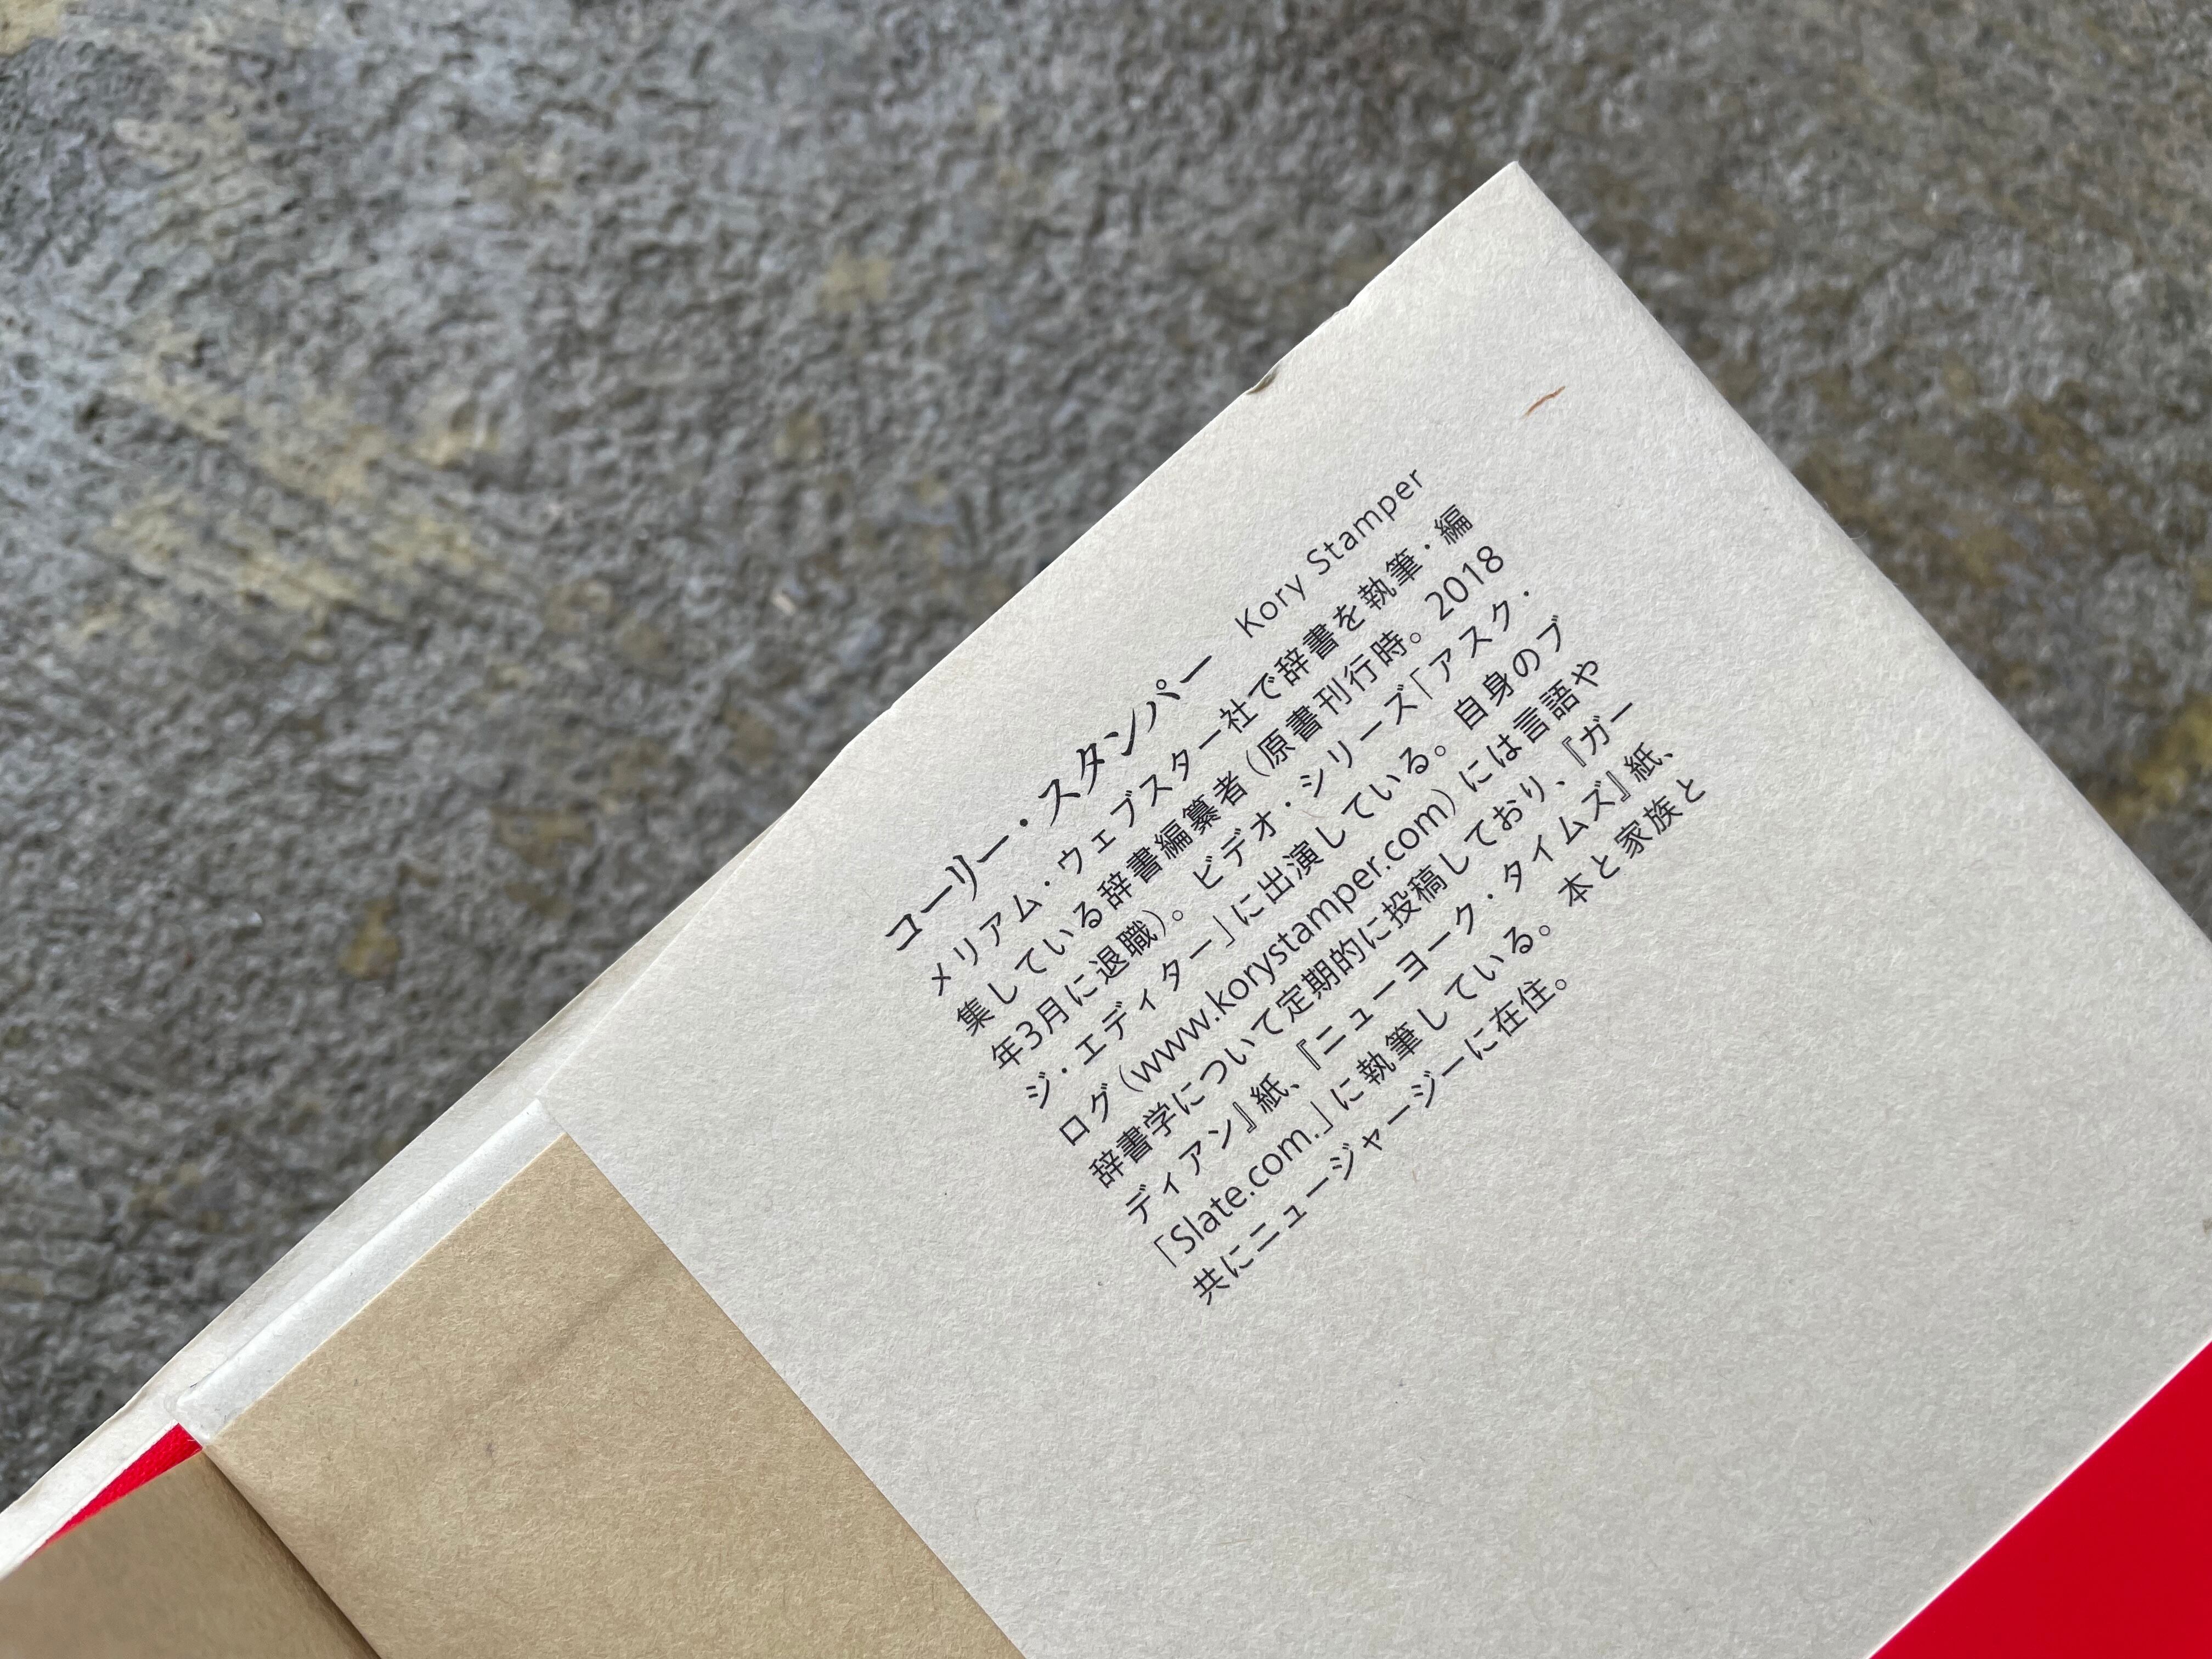 コーリー・スタンパー Kory Stamper
メリアム・ウェブスター社で辞書を執筆・編
集している辞書編纂者（原書刊行時。2018
年3月に退職）。ビデオ・シリーズ「アスク・
ジ・エディター」に出演している。自身のブ
ログ（www.korystamper.com）には言語や
辞書学について定期的に投稿しており、『ガー
ディアン』紙、『ニューヨーク・タイムズ』紙、
「Slate.com.」に執筆している。本と家族と
共にニュージャージーに在住。